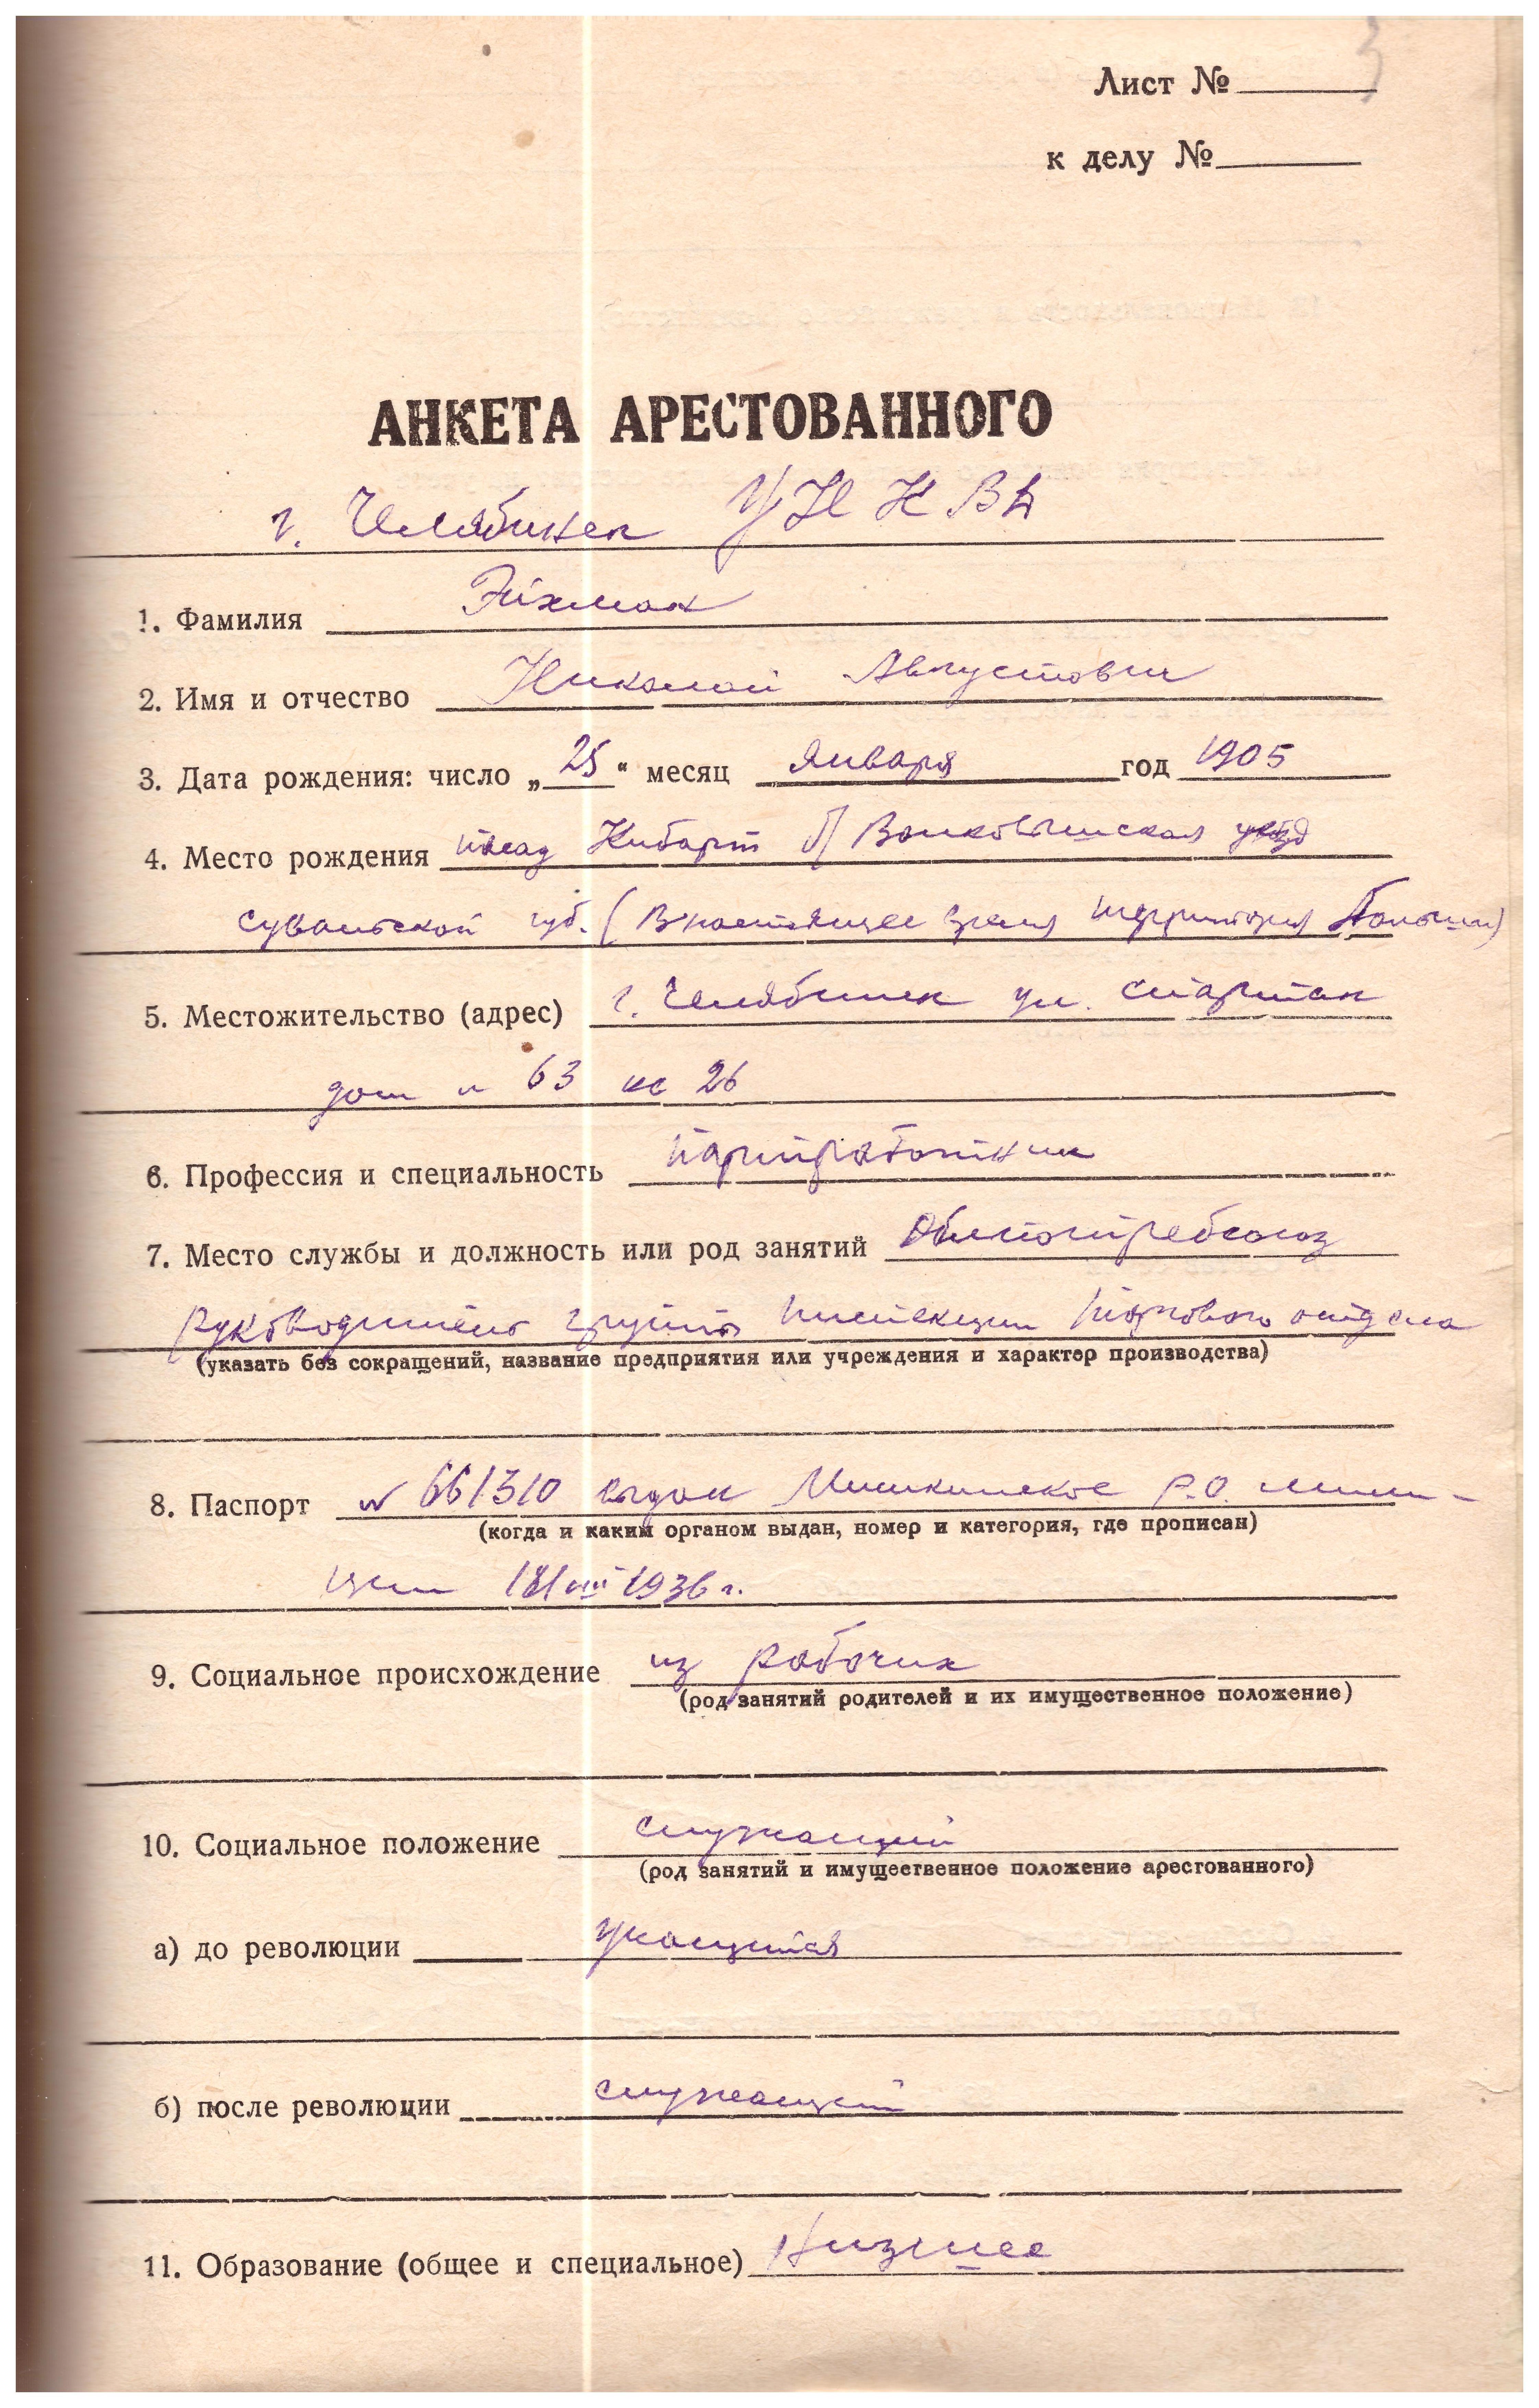 Лист №
к делу №
АНКЕТА АРЕСТОВАННОГО
г. Челябинск УНКВД
1. Фамилия Эйхман
2. Имя и отчество Николай Августович
3. Дата рождения: число „25“ месяц января год 1905
4. Место рождения посад Кибарт б/ Волковышская уезд
сувальской губ. (В настоящее время территория Польши)
5. Местожительство (адрес) г. Челябинск ул. Спартак
дом № 63 кв 26
6. Профессия и специальность партработник
7. Место службы и должность или род занятий Облпотребсоюз
руководитель группы инспекции торгового отдела
(указать без сокращений, название предприятия или учреждения и характер производства)
8. Паспорт № 661310 выдан Мишкинское Р.О. мили-
(когда и каким органом выдан, номер и категория, где прописан)
ции 18/VIII 1936 г.
9. Социальное происхождение из рабочих
(род занятий родителей и их имущественное положение)
10. Социальное положение служащий
(род занятий и имущественное положение арестованного)
а) до революции учащийся
б) после революции служащий
11. Образование (общее и специальное) Низшее